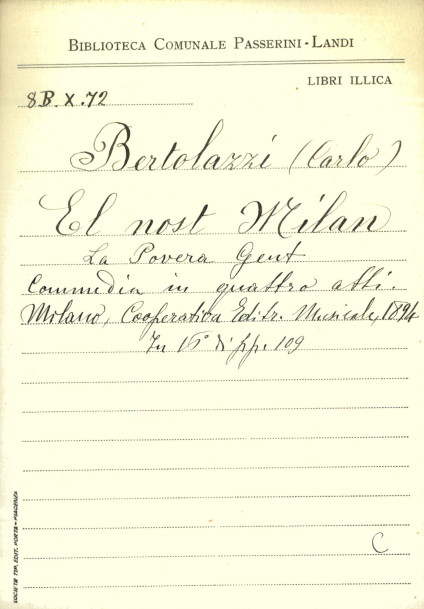 BIBLIOTECA COMUNALE PASSERINI-LANDI
LIBRI ILLICA
8B.X.72
Bertolazzi (Carlo)
El nost Milan
La Povera Gent
Commedia in quattro atti.
Milano, Cooperativa Editr. Musicale, 1894
In 16° di pp. 109
C
SOCIETÀ TIP. EDIT. PORTA - PIACENZA